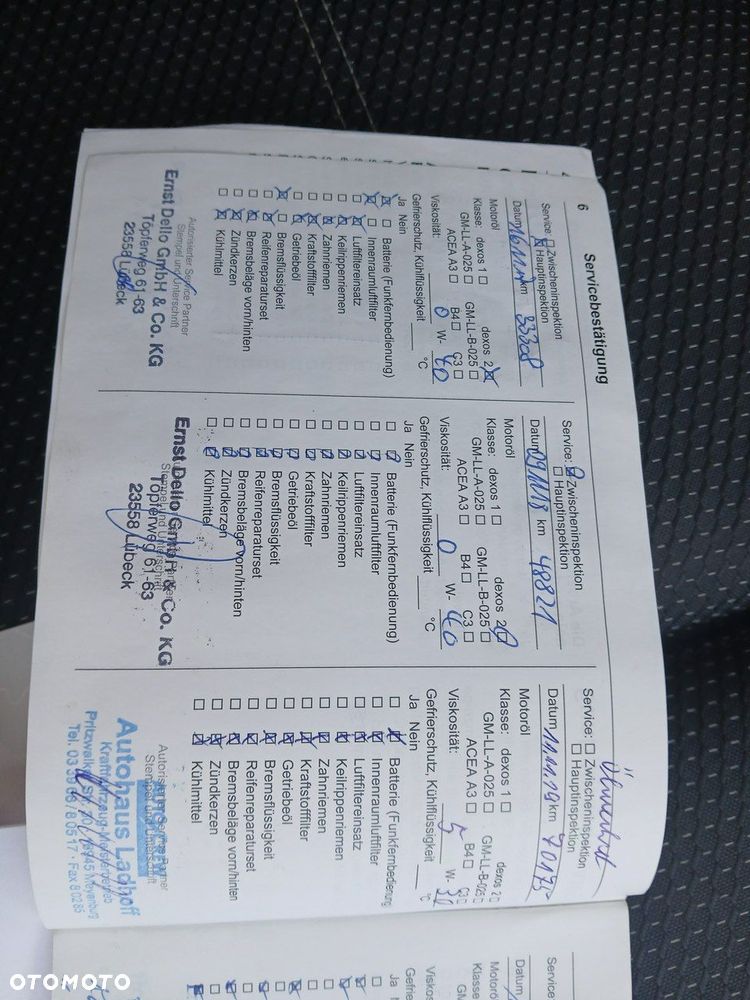 6
Servicebestätigung
Service: ☐ Zwischeninspektion
☒ Hauptinspektion
Datum km 33308
Motoröl
Klasse: dexos 1 ☐ dexos 2 ☒
GM-LL-A-025 ☐ GM-LL-B-025 ☐
ACEA A3 ☐ B4 ☐ C3 ☐
Viskosität: 0 W- 40
Gefrierschutz, Kühlflüssigkeit °C
Ja Nein
Batterie (Funkfernbedienung)
Innenraumluftfilter
Luftfiltereinsatz
Keilrippenriemen
Zahnriemen
Kraftstofffilter
Getriebeöl
Bremsflüssigkeit
Reifenreparaturset
Bremsbeläge vorn/hinten
Zündkerzen
Kühlmittel
Autorisierter Service Partner
Stempel und Unterschrift
Ernst Dello GmbH & Co. KG
Töpferweg 61-63
23558 Lübeck
Service: ☒ Zwischeninspektion
☐ Hauptinspektion
Datum 09.11.18 km 48821
Motoröl
Klasse: dexos 1 ☐ dexos 2 ☒
GM-LL-A-025 ☐ GM-LL-B-025 ☐
ACEA A3 ☐ B4 ☐ C3 ☐
Viskosität: 0 W- 40
Gefrierschutz, Kühlflüssigkeit °C
Ja Nein
Batterie (Funkfernbedienung)
Innenraumluftfilter
Luftfiltereinsatz
Keilrippenriemen
Zahnriemen
Kraftstofffilter
Getriebeöl
Bremsflüssigkeit
Reifenreparaturset
Bremsbeläge vorn/hinten
Zündkerzen
Kühlmittel
Stempel und Unterschrift
Ernst Dello GmbH & Co. KG
Töpferweg 61-63
23558 Lübeck
Service: ☐ Zwischeninspektion
☐ Hauptinspektion
Datum 11.11.19 km 70175
Motoröl
Klasse: dexos 1 ☐ dexos 2 ☐
GM-LL-A-025 ☐ GM-LL-B-025 ☐
ACEA A3 ☐ B4 ☐ C3 ☐
Viskosität: 5 W- 30
Gefrierschutz, Kühlflüssigkeit °C
Ja Nein
Batterie (Funkfernbedienung
Innenraumluftfilter
Luftfiltereinsatz
Keilrippenriemen
Zahnriemen
Kraftstofffilter
Getriebeöl
Bremsflüssigkeit
Reifenreparaturset
Bremsbeläge vorn/hinten
Zündkerzen
Kühlmittel
Autohaus Ladhoff
Kraftfahrzeug-Meisterbetrieb
Meyenburg
Fax 8 02 85
Service:
Datum
Motoröl
Klasse
Viskos
Gefrie
Ja
OTOMOTO